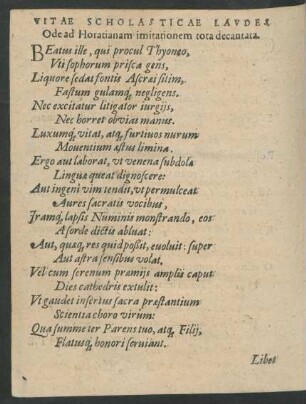 VITAE SCHOLASTICAE LAVDES
Ode ad Horatianam imitationem tota decantata.
BEatus ille, qui procul Thyoneo,
Vti sophorum prisca gens,
Liquore sedat fontis Ascræi sitim,
Fastum gulamq́; negligens.
Nec excitatur litigator iurgijs,
Nec horret obvias manus.
Luxumq́; vitat, atq́; furtivos nurum
Moventium astus limina.
Ergo aut laborat, vt venena subdola
Linguæ queat dignoscere:
Aut ingenî vim tendit, vt permulceat
Aures sacratis vocibus,
Iramq́; lapsis Numinis monstrando, eos
A sorde dictis abluat:
Aut, quaq́; res quid possit, evoluit: super
Aut astra sensibus volat,
Vel cum serenum præmijs amplis caput
Dies cathedris extulit:
Vt gaudet insertus sacra præstantium
Scientia choro virûm:
Qua summe ter Parens tuo, atq́; Filij,
Flatusq́; honori serviant.
Libet